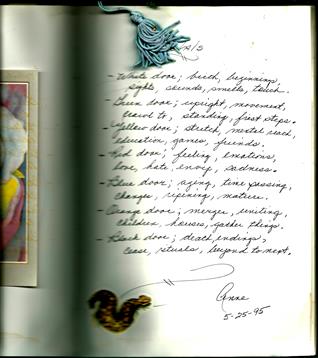 - White door; birth, beginnings,
sights, sounds, smells, touch.
- Green door; upright, movement,
crawl to, standing, first steps.
- Yellow door; stretch, mental reach,
education, games, friends.
- Red door; feeling, emotions,
love, hate, envy, sadness.
- Blue door; aging, time passing,
changes, ripening, mature.
- Orange door; merger, uniting,
children, houses, gather things.
- Black door; death, endings,
cease, rituals, beyond to next.
Anne
5-25-95